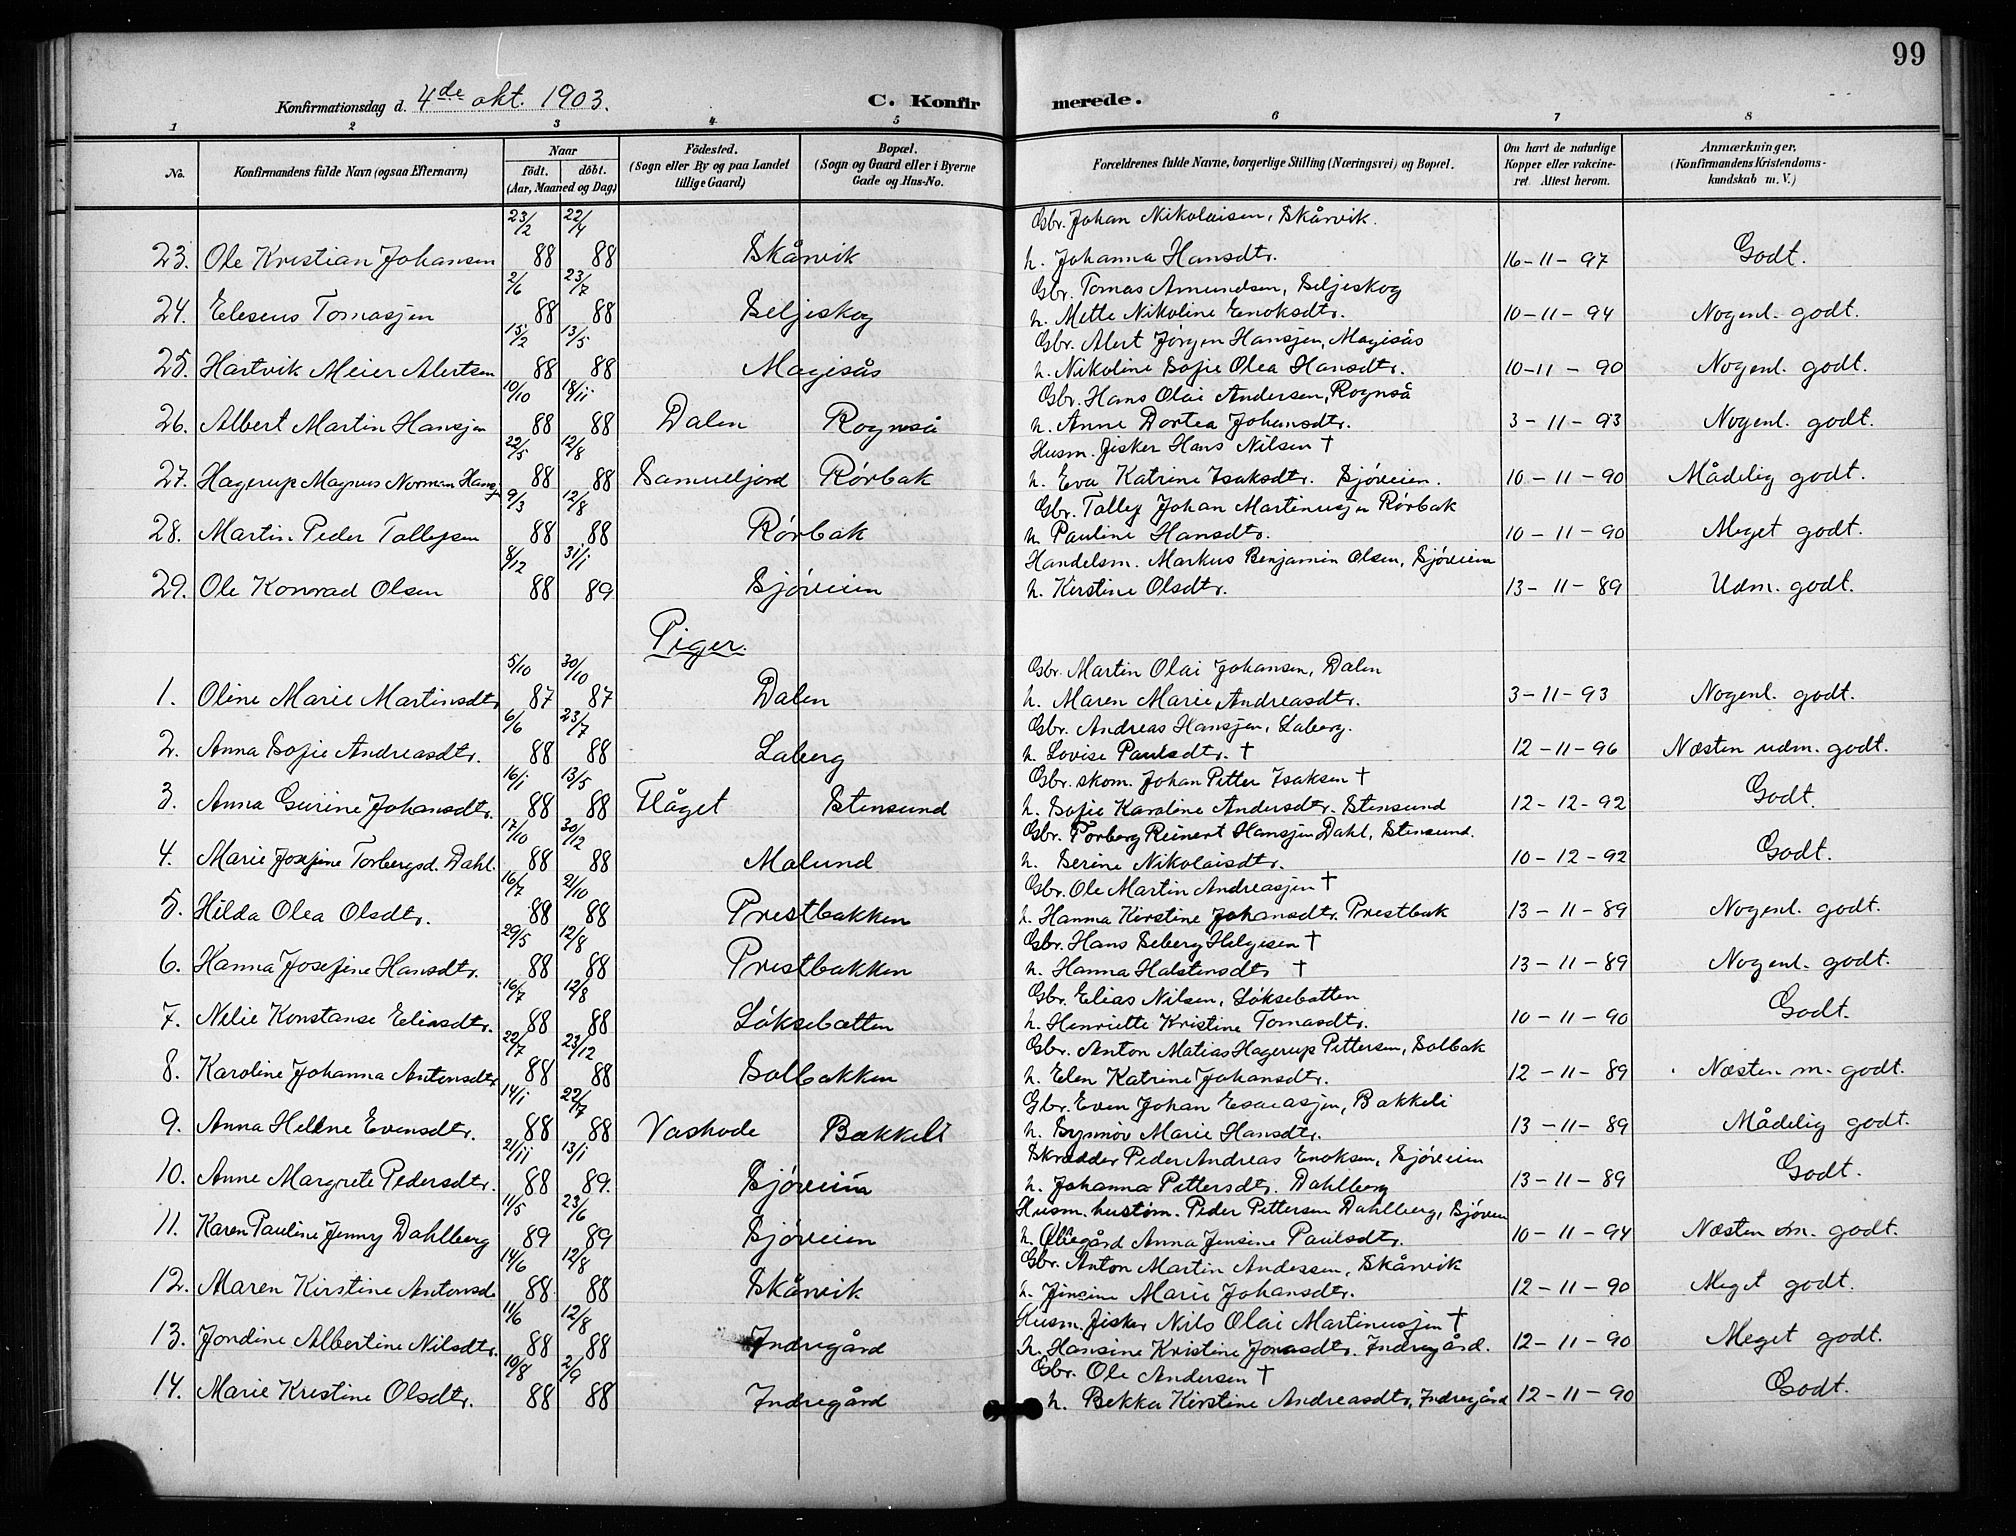 99
Konfirmationsdag d. 4de okt. 1903. C. Konfirmerede.
1 2 3 4 5 6 7 8
No. Konfirmandens fulde Navn (ogsaa Efternavn) Naar født. døbt. (Aar, Maaned og Dag) Fødested. (Sogn eller By og paa Landet tillige Gaard) Bopæl. (Sogn og Gaard eller i Byerne Gade og Hus-No. Forældrenes fulde Navne, borgerlige Stilling (Næringsvei) og Bopæl. Om havt de naturlige Kopper eller vakcineret. Attest herom. Anmærkninger. (Konfirmandens Kristendomskundskab m. V.)
23/2 22/4 Gbr. Johan Nikolaisen, Skårvik.
23. Ole Kristian Johansen 88 88 Skårvik h. Johanna Hansdtr. 16-11-97 Godt.
2/6 23/7 Gbr. Tomas Amundsen, Seljeskog
24. Elesens Tomassen 88 88 Seljeskog h. Mette Nikoline Enoksdtr. 10-11-94 Nogenl. godt.
15/2 13/5 Gbr. Alert Jørgen Hanssen, Magisås
25. Hartvik Meier Alertsen 88 88 Magisås h. Nikoline Sofie Olea Hansdtr. 10-11-90 Nogenl. godt.
10/10 18/11 Gbr. Hans Olai Andersen, Rognså
26. Albert Martin Hanssen 88 88 Dalen Rognså h. Anne Dortea Johansdtr. 3-11-93 Nogenl. godt.
22/5 12/8 Husm. fisker Hans Nilsen †
27. Hagerup Magnus Norman Hanss 88 88 Samueljord Rørbak h. Eva Katrine Isaksdtr. Sjøveien. 10-11-90 Mådelig godt.
9/3 12/8 Gbr. Tollef Johan Martinussen Rørbak
28. Martin Peder Tollefsen 88 88 Rørbak h. Pauline Hansdtr. 10-11-90 Meget godt.
8/12 31/1 Handelsm. Markus Benjamin Olsen, Sjøveien
29. Ole Konrad Olsen 88 89 Sjøveien h. Kirstine Olsdtr. 13-11-89 Udm. godt.
Piger.
5/10 30/10 Gbr. Martin Olai Johansen, Dalen
1. Oline Marie Martinsdtr. 87 87 Dalen h. Maren Marie Andreasdtr. 3-11-93 Nogenl. godt.
6/6 23/7 Gbr. Andreas Hanssen, Laberg.
2. Anna Sofie Andreasdtr. 88 88 Laberg h. Lovise Paulsdtr. † 12-11-96 Næsten udm. godt.
16/1 13/5 Gbr. skom. Johan Petter Isaksen †
3. Anna Gurine Johansdtr. 88 88 Flåget Stensund h. Sofie Karoline Andersdtr. Stensund 12-12-92 Godt.
17/10 30/12 Gbr. Torberg Reinert Hanssen Dahl, Stensund.
4. Marie Josefine Torbergsd. Dahl. 88 88 Molund h. Serine Nikolaisdtr. 10-12-92 Godt.
16/7 21/10 Gbr. Ole Martin Andreassen †
5. Hilda Olea Olsdtr. 88 88 Prestbakken h. Hanna Kirstine Johansdtr. Prestbak 13-11-89 Nogenl. godt.
29/5 12/8 Gbr. Hans Seberg Helgesen †
6. Hanna Josefine Hansdtr. 88 88 Prestbakken h. Hanna Halstensdtr † 13-11-89 Nogenl. godt.
16/7 12/8 Gbr. Elias Nilsen, Løksebotten
7. Nelie Konstanse Eliasdtr. 88 88 Løksebotten h. Henriette Kristine Tomasdtr. 10-11-90 Godt.
22/7 23/12 Gbr. Anton Matias Hagerup Pettersen, Solbak
8. Karoline Johanna Antonsdtr 88 88 Solbakken h. Elen Katrine Johansdtr. 12-11-89 Næsten m. godt.
14/1 22/7 Gbr. Even Johan Esaiassen, Bakkeli
9. Anna Helene Evensdtr. 88 88 Vashode Bakkeli h. Synnøv Marie Hansdtr. 13-11-89 Mådelig godt.
21/11 13/1 Skrædder Peder Andreas Enoksen, Sjøveien
10. Anne Margrete Pedersdtr. 88 89. Sjøveien h. Johanna Pettersdtr. Dahlberg 13-11-89 Godt.
11/5 23/6 Husm. hustøm. Peder Pettersen Dahlberg, Sjøveien
11. Karen Pauline Jenny Dahlberg 89 89 Sjøveien h. Ollegård Anna Jensine Paulsdtr. 10-11-94 Næsten m. godt.
14/6 12/8 Gbr. Anton Martin Andersen, Skårvik
12. Maren Kirstine Antonsd. 88 88 Skårvik h. Jensine Marie Johansdtr. 12-11-90 Meget godt.
11/6 12/8 Husm. fisker Nils Olai Martinussen †
13. Jondine Albertine Nilsdtr. 88 88 Indregård h. Hansine Kristine Jonasdtr. Indregård. 12-11-90 Meget godt.
10/8 2/9 Gbr. Ole Andersen †
14. Marie Kristine Olsdtr. 88 88 Indregård h. Bekka Kirstine Andreasdtr, Indregård 12-11-90 Godt.